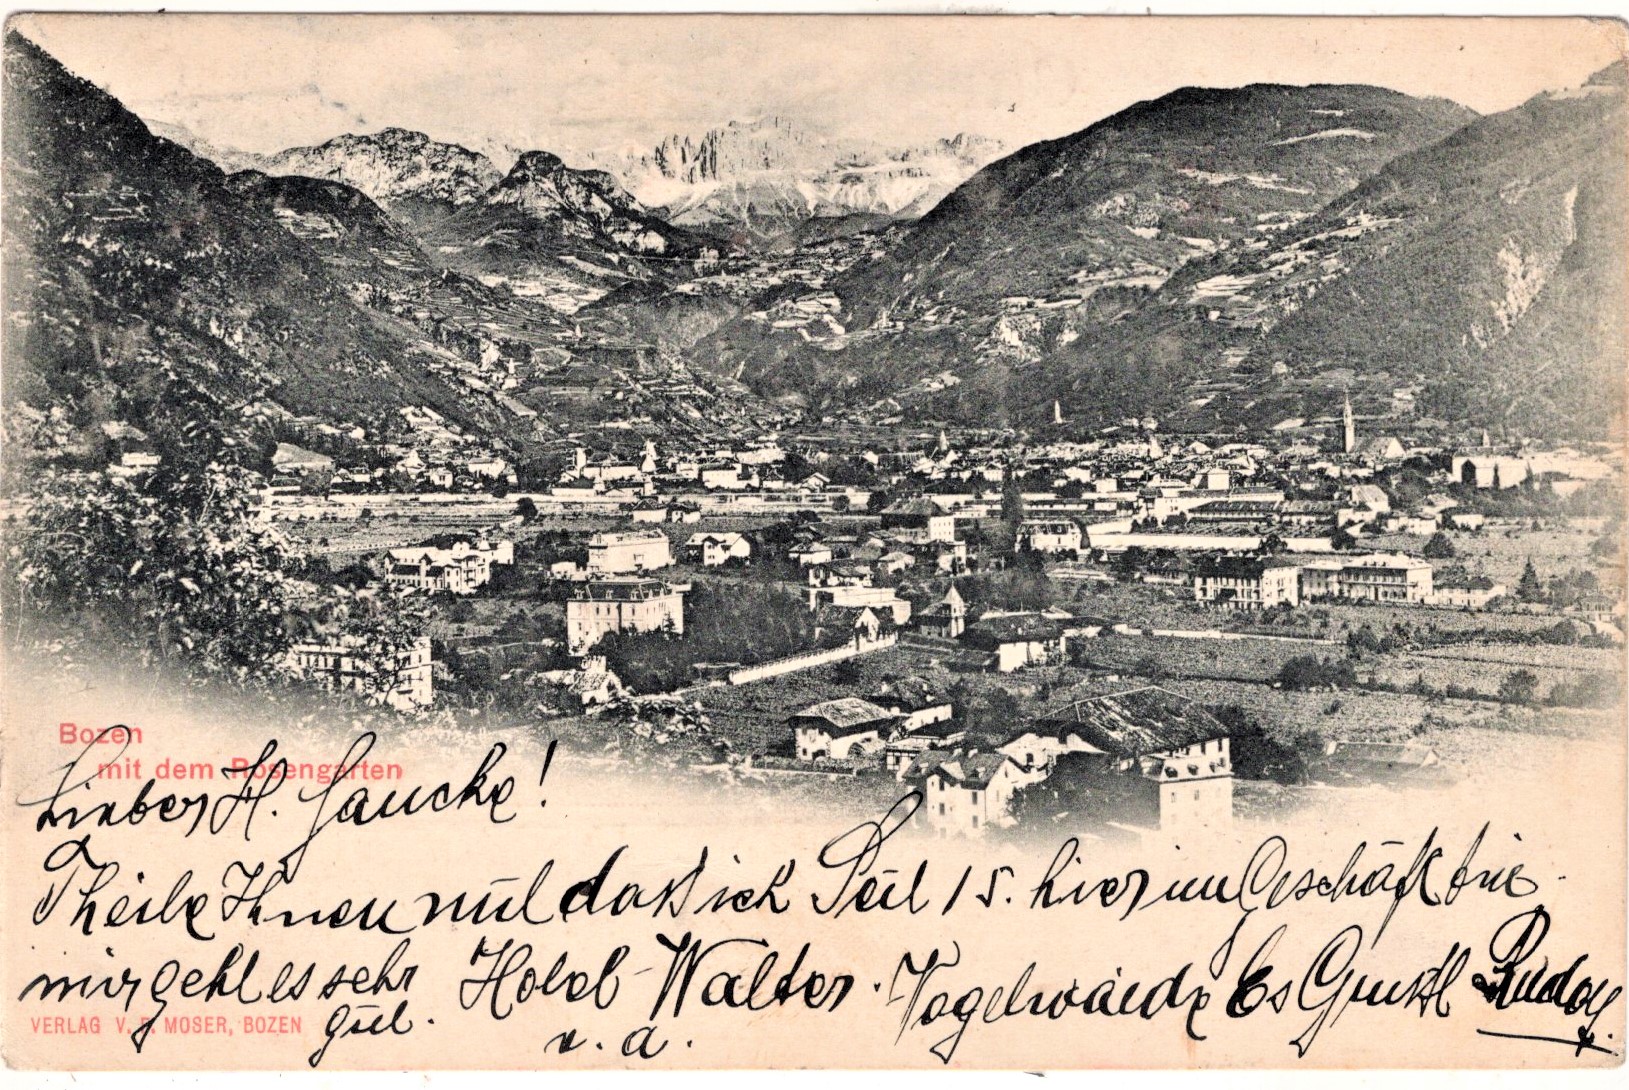 Bozen
mit dem Rosengarten
Lieber H. Gaucke!
Theile Ihnen mit daß ich Seit 15. hier im Geschäft bin
mir geht es sehr Hotel Walter. Es Grüßt Rudolf.
gut. v. a.
VERLAG V. F. MOSER, BOZEN